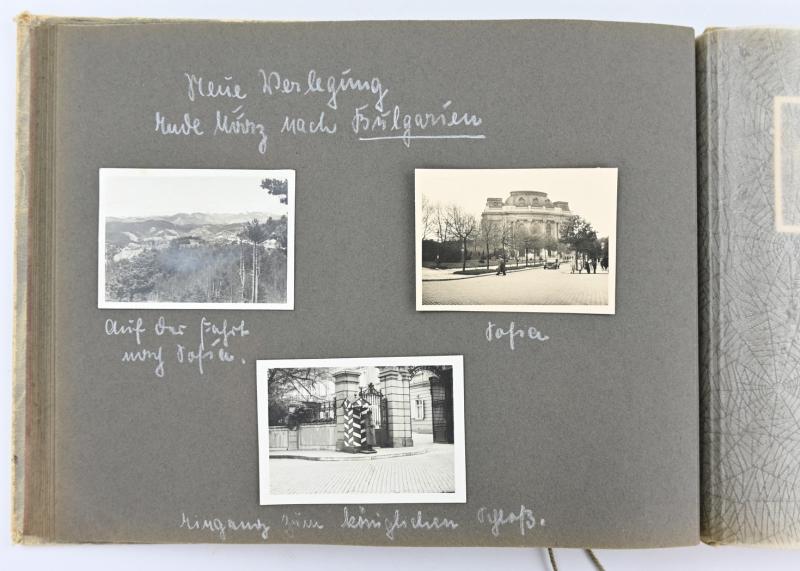 Neue Verlegung
Ende März nach Bulgarien
Auf der Fahrt
nach Sofia.
Sofia
Eingang zum königlichen Schloß.